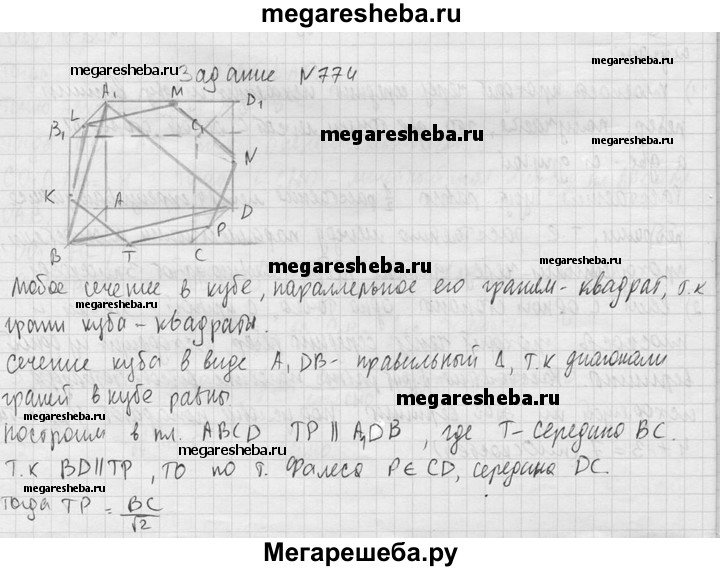 megaresheba.ru
megaresheba.ru
Задание N774
A₁ M D₁
L
B₁ C₁
megaresheba.ru
N
megaresheba.ru
K A D
P
B T C
megaresheba.ru
megaresheba.ru
Любое сечение в кубе, параллельное его граням - квадрат, т.к
грани куба - квадраты.
Сечение куба в виде A₁DB - правильный Δ, т.к диагонали
граней в кубе равны
megaresheba.ru
Построим в пл. ABCD TP || A₁DB, где T - середина BC.
megaresheba.ru
Т.к BD||TP, то по т. Фалеса P∈CD, середина DC.
megaresheba.ru
тогда TP = BC/√2
megaresheba.ru
Мегарешеба.ру